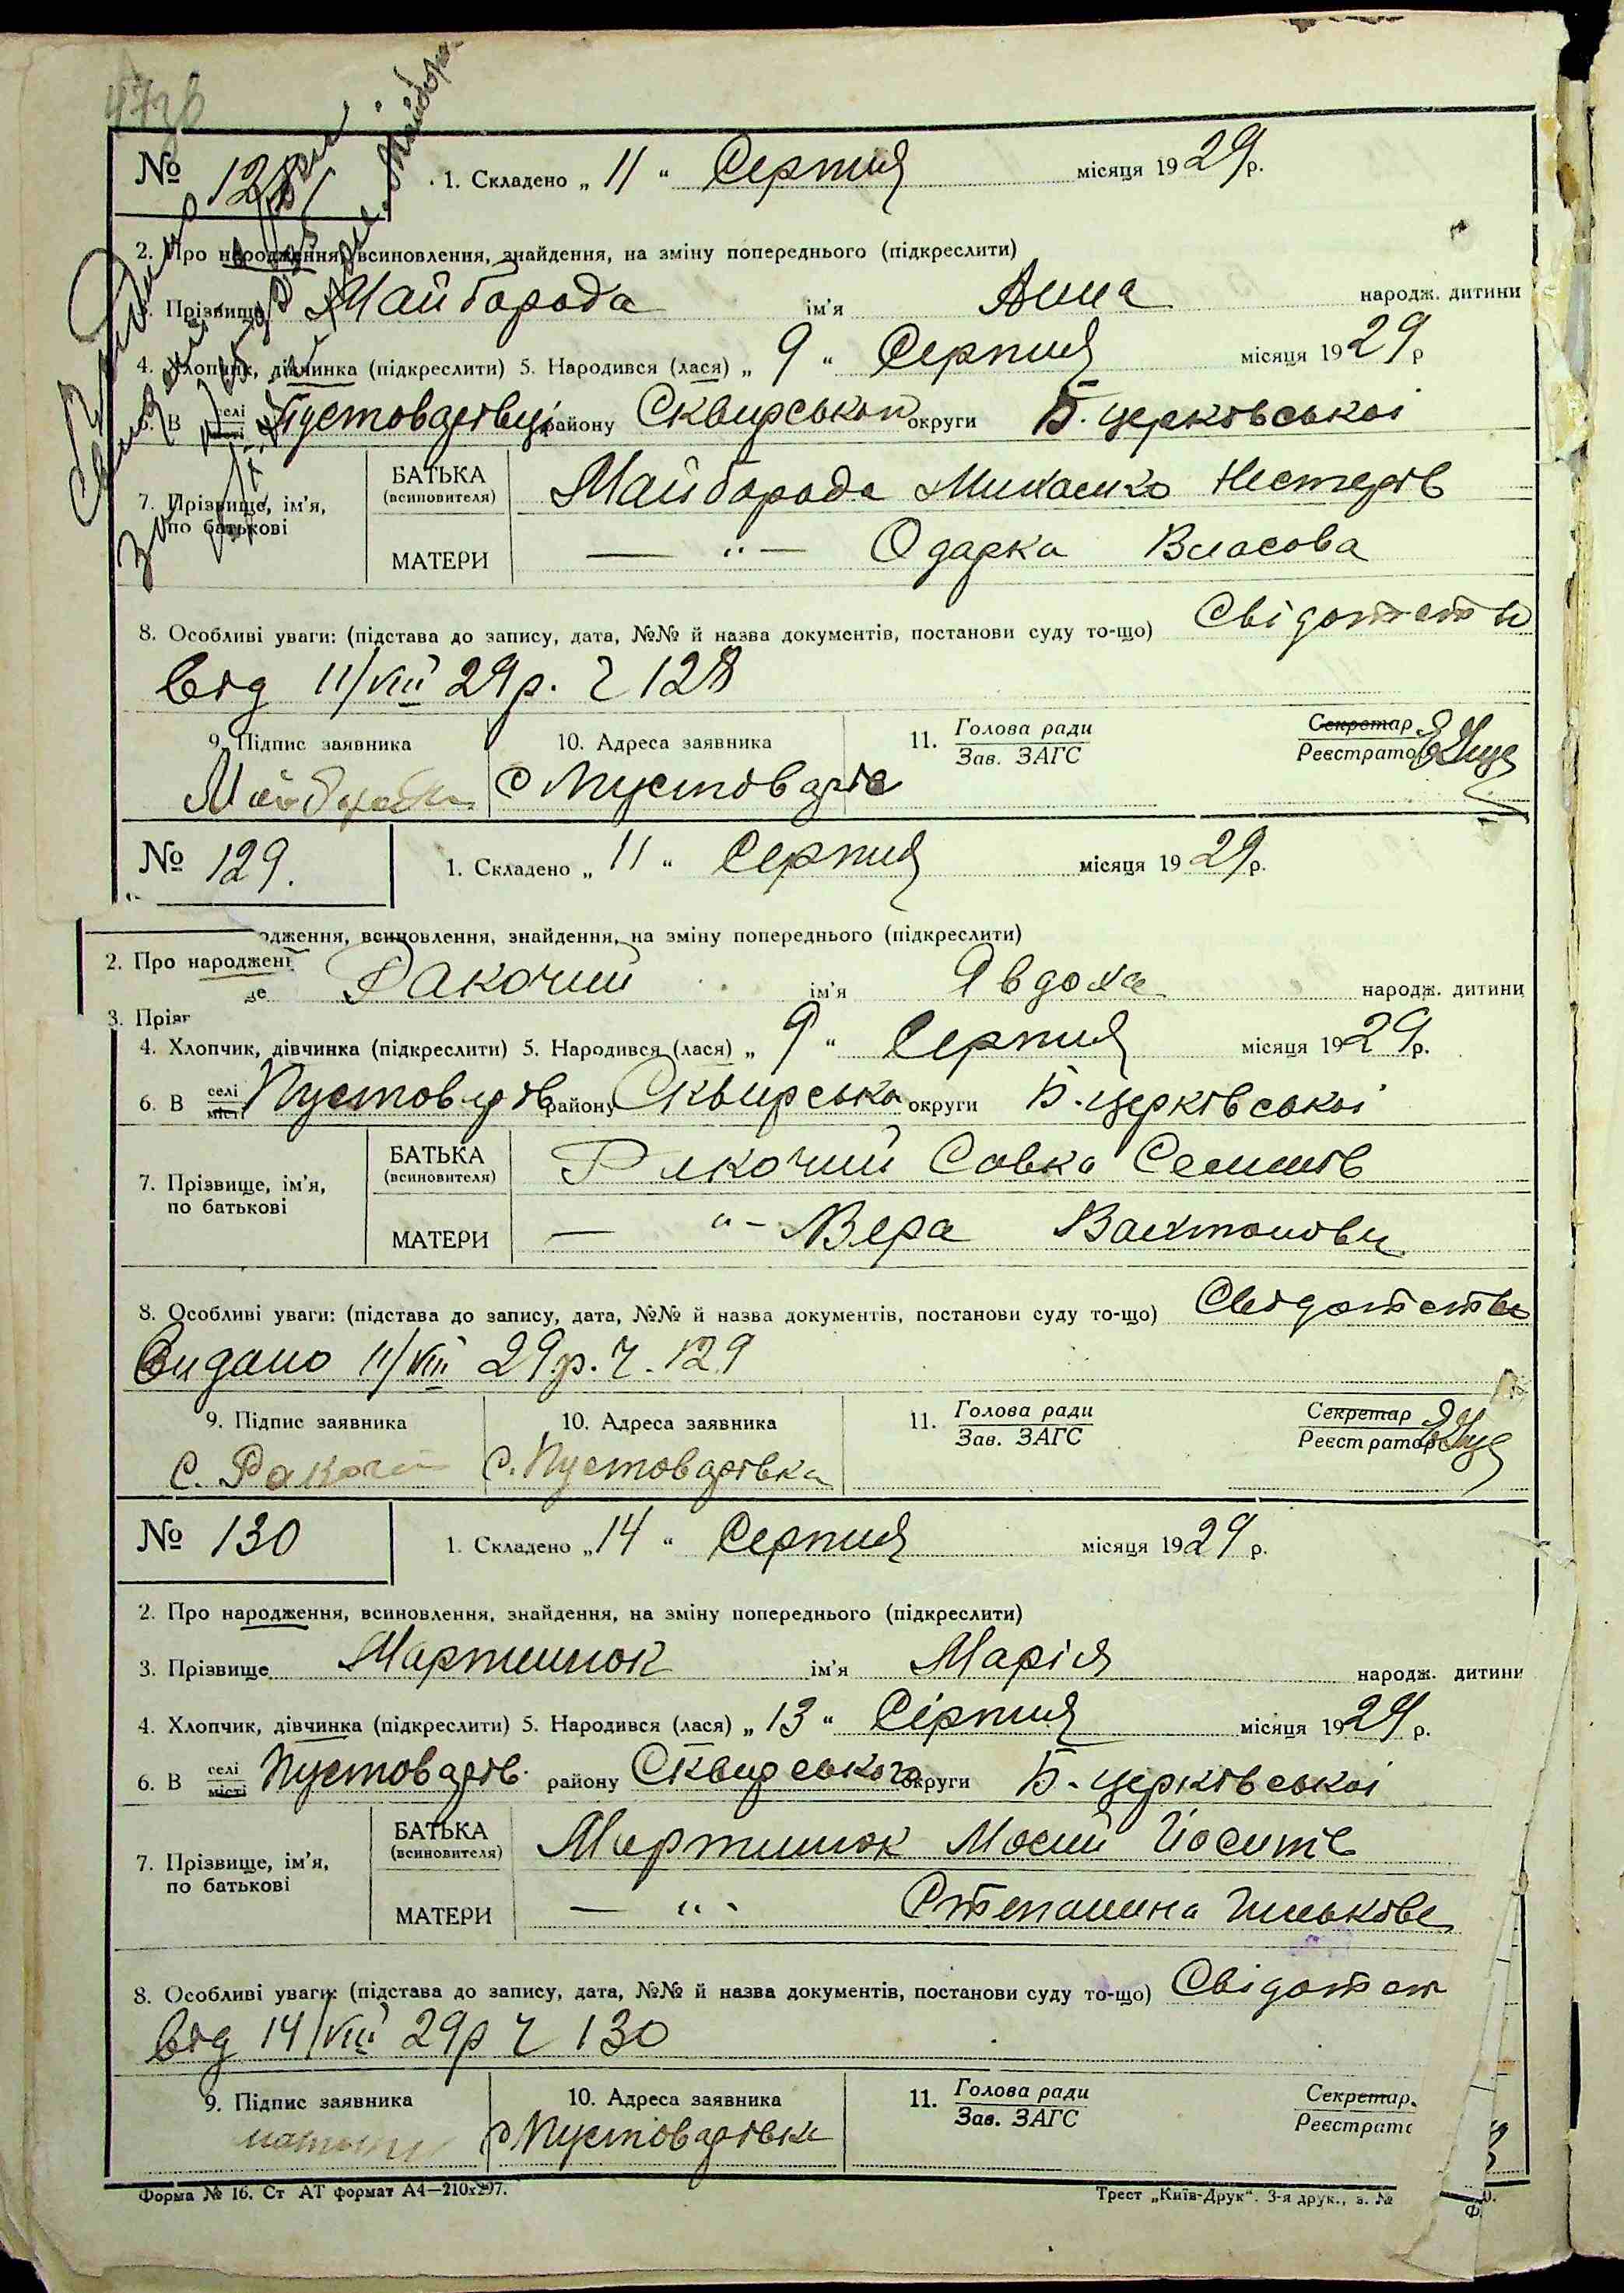 № 128 1. Складено „ 11 “ Серпня місяця 1929 р.
2. Про народження, всиновлення, знайдення, на зміну попереднього (підкреслити)
Прізвище Майборода ім'я Анна народж. дитини
4. Хлопчик, дівчинка (підкреслити) 5. Народився (лася) „ 9 “ Серпня місяця 1929 р
В селі місті Пустоварівці району Сквирськой округи Б. Церківської
7. Прізвище, ім'я, по батькові
БАТЬКА (всиновителя) Майборода Михалко Нестерів
МАТЕРИ — “ — Одарка Власова
8. Особливі уваги: (підстава до запису, дата, №№ й назва документів, постанови суду то-що) Свідотство
від 11/VIII 29 р. Ч 128
9. Підпис заявника 10. Адреса заявника 11. Голова ради Зав. ЗАГС Секретар Реєстратор
Майборода с Пустоварів
№ 129. 1. Складено „ 11 “ Серпня місяця 1929 р.
одження, всиновлення, знайдення, на зміну попереднього (підкреслити)
2. Про народжені
ще Ракочий ім'я Явдоха народж. дитини
3. Пріз
4. Хлопчик, дівчинка (підкреслити) 5. Народився (лася) „ 9 “ Серпня місяця 1929 р.
6. В селі місті Пустоварів району Сквирська округи Б. Церківської
7. Прізвище, ім'я, по батькові
БАТЬКА (всиновителя) Ракочий Совка Семенів
МАТЕРИ — “ — Вера
8. Особливі уваги: (підстава до запису, дата, №№ й назва документів, постанови суду то-що) Свідотство
Видано 11/VIII 29 р. Ч. 129
9. Підпис заявника 10. Адреса заявника 11. Голова ради Зав. ЗАГС Секретар Реєстратор
С. Ракочий с. Пустоварівка
№ 130 1. Складено „ 14 “ Серпня місяця 1929 р.
2. Про народження, всиновлення, знайдення, на зміну попереднього (підкреслити)
3. Прізвище Мартинюк ім'я Марія народж. дитини
4. Хлопчик, дівчинка (підкреслити) 5. Народився (лася) „ 13 “ Сірпня місяця 1929 р.
6. В селі місті Пустоварів. району Сквирського округи Б. Церківської
7. Прізвище, ім'я, по батькові
БАТЬКА (всиновителя) Мартинюк Мосий Йосипів
МАТЕРИ — “ Степанина
8. Особливі уваги: (підстава до запису, дата, №№ й назва документів, постанови суду то-що) Свідотст
від 14/VIII 29 р Ч 130
9. Підпис заявника 10. Адреса заявника 11. Голова ради Зав. ЗАГС Секретар. Реєстрато
с Пустоварівка
Форма № 16. Ст АТ формат А4—210х297. Трест „Київ-Друк“. 3-я друк., з. №